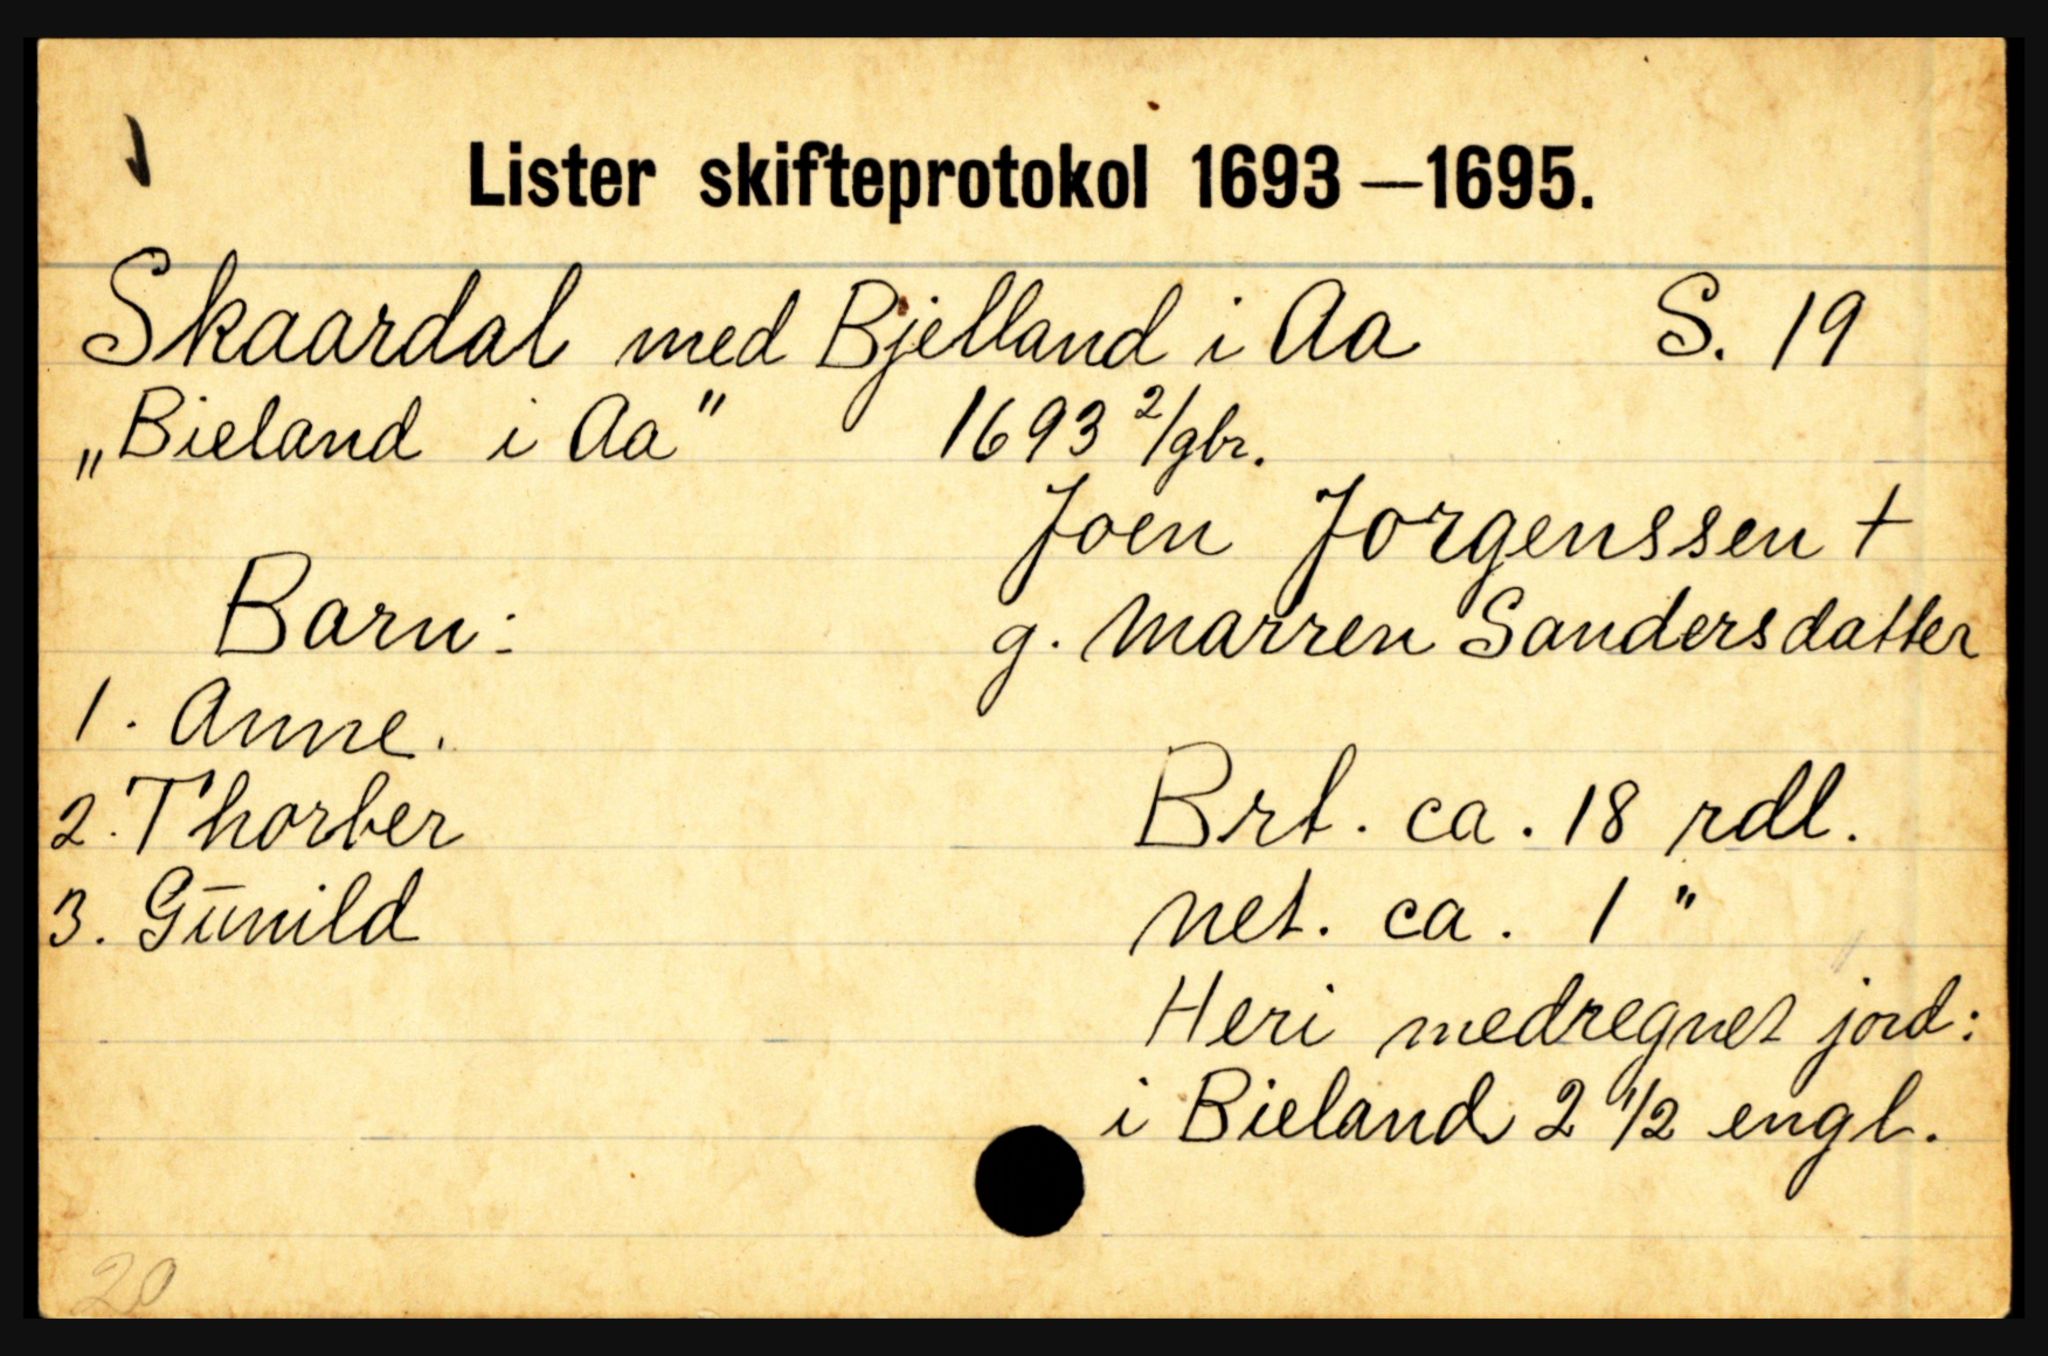 Lister skifteprotokol 1693—1695.
Skaardal med Bjelland i Aa S. 19
„Bieland i Aa" 1693 2/9br.
Joen Jorgenssen +
Barn: g. Marren Sandersdatter
1. Anne.
2. Thorber Brt. ca. 18 rdl.
3. Gūnild net. ca. 1 "
Heri medregnet jord:
i Bieland 2 1/2 engl.
20